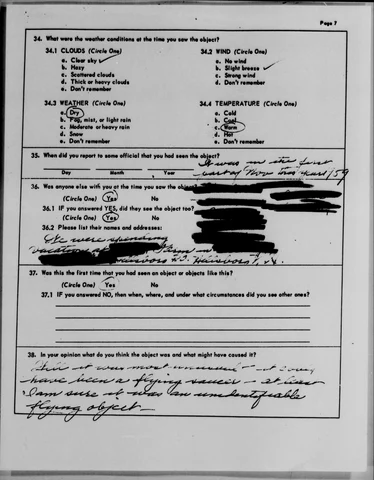 Page 7
34. What were the weather conditions at the time you saw the object?
34.1 CLOUDS (Circle One) 34.2 WIND (Circle One)
a. Clear sky a. No wind
b. Hazy b. Slight breeze
c. Scattered clouds c. Strong wind
d. Thick or heavy clouds d. Don't remember
e. Don't remember
34.3 WEATHER (Circle One) 34.4 TEMPERATURE (Circle One)
a. Dry a. Cold
b. Fog, mist, or light rain b. Cool
c. Moderate or heavy rain c. Warm
d. Snow d. Hot
e. Don't remember e. Don't remember
35. When did you report to some official that you had seen the object?
It was in the first
Day Month Year
36. Was anyone else with you at the time you saw the object?
(Circle One) Yes No
36.1 IF you answered YES, did they see the object too?
(Circle One) Yes No
36.2 Please list their names and addresses:
We were spending
vacation
37. Was this the first time that you had seen an object or objects like this?
(Circle One) Yes No
37.1 IF you answered NO, then when, where, and under what circumstances did you see other ones?
38. In your opinion what do you think the object was and what might have caused it?
it was most unusual - it could
have been a flying saucer - at least
I am sure it was an unidentifiable
flying object -